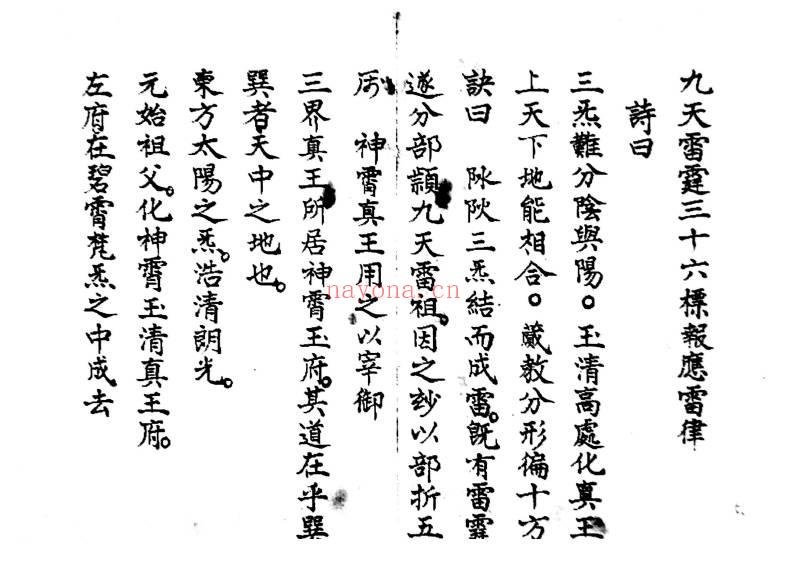 九天雷霆三十六標報應雷律
詩曰
三炁難分陰與陽。玉清高處化真王
上天下地能相合。藏教分形徧十方
訣曰 三炁結而成雷。既有雷霆
遂分部顈九天雷祖。因之玅以部折五
神霄真王用之以宰御
三界真王所居神霄玉府。其道在乎巽
巽者天中之地也。
東方太陽之炁。浩清朗光。
元始祖父。化神霄玉清真王府。
左府在碧霄梵炁之中成去
nayona.cn